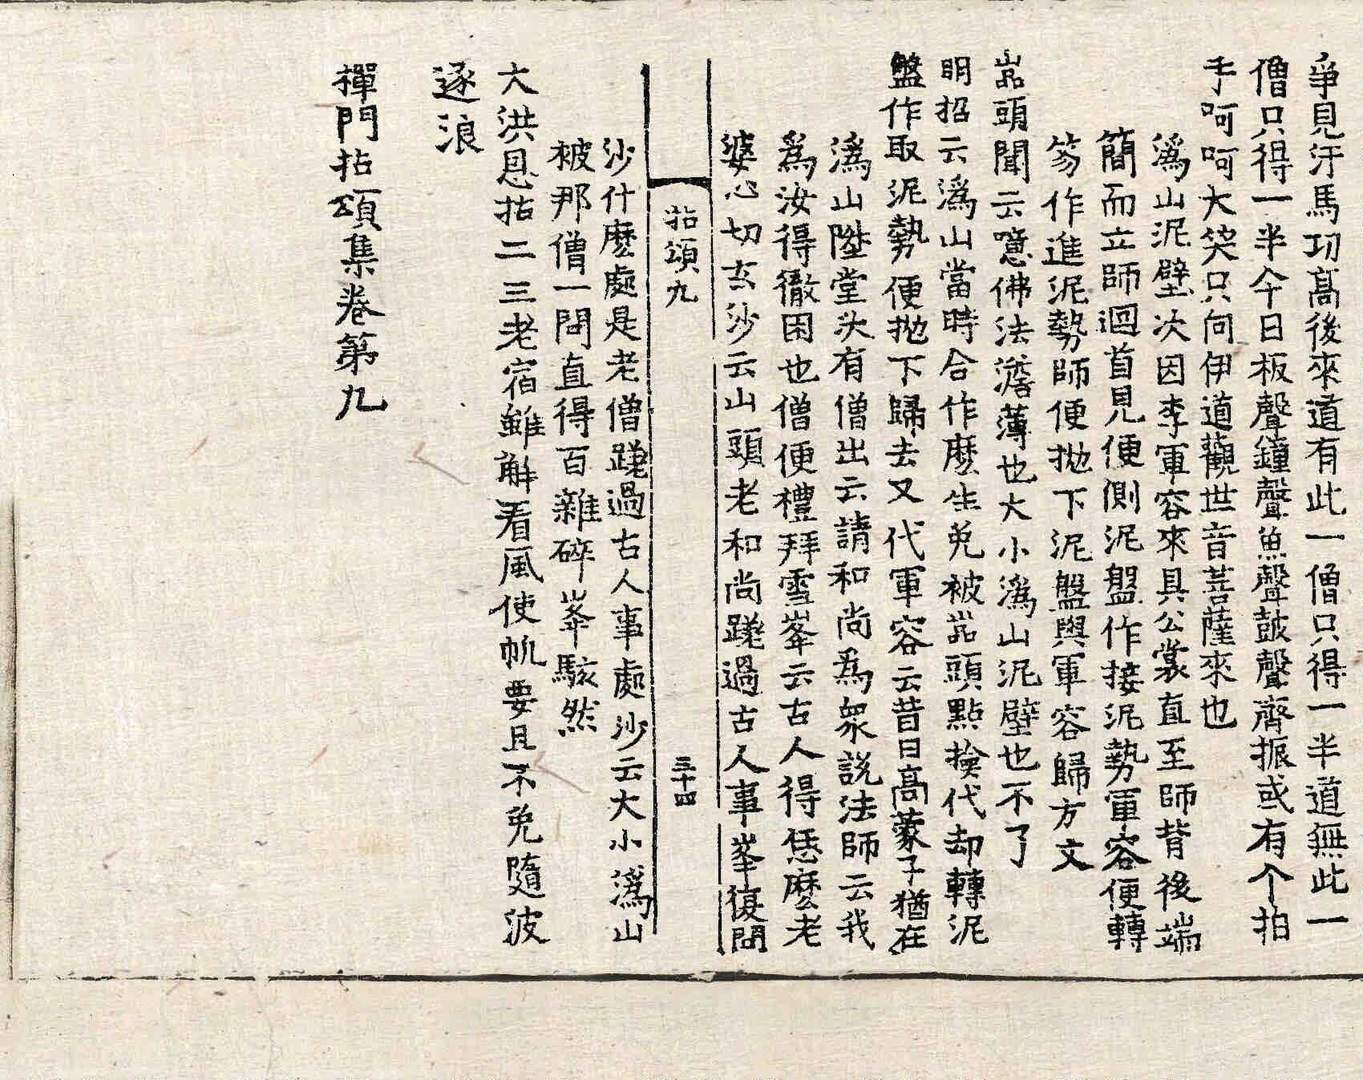 爭見汗馬功高後來道有此一僧只得一半道無此一
僧只得一半今日板聲鐘聲魚聲鼓聲齊振或有个拍
手呵呵大笑只向伊道觀世音菩薩來也
潙山泥壁次因李軍容來具公裳直至師背後端
簡而立師迴首見便側泥盤作接泥勢軍容便轉
笏作進泥勢師便抛下泥盤與軍容歸方丈
嵓頭聞云噫佛法澹薄也大小潙山泥壁也不了
明招云潙山當時合作麽生免被嵓頭點撿代却轉泥
盤作取泥勢便抛下歸去又代軍容云昔日高蒙子猶在
潙山陞堂次有僧出云請和尚爲衆說法師云我
爲汝得徹困也僧便禮拜雪峯云古人得恁麽老
婆心切玄沙云山頭老和尚蹉過古人事峯復問
拈頌九
三十四
沙什麽處是老僧蹉過古人事處沙云大小潙山
被那僧一問直得百雜碎峯駭然
大洪恩拈二三老宿雖解看風使帆要且不免隨波
逐浪
禪門拈頌集卷第九